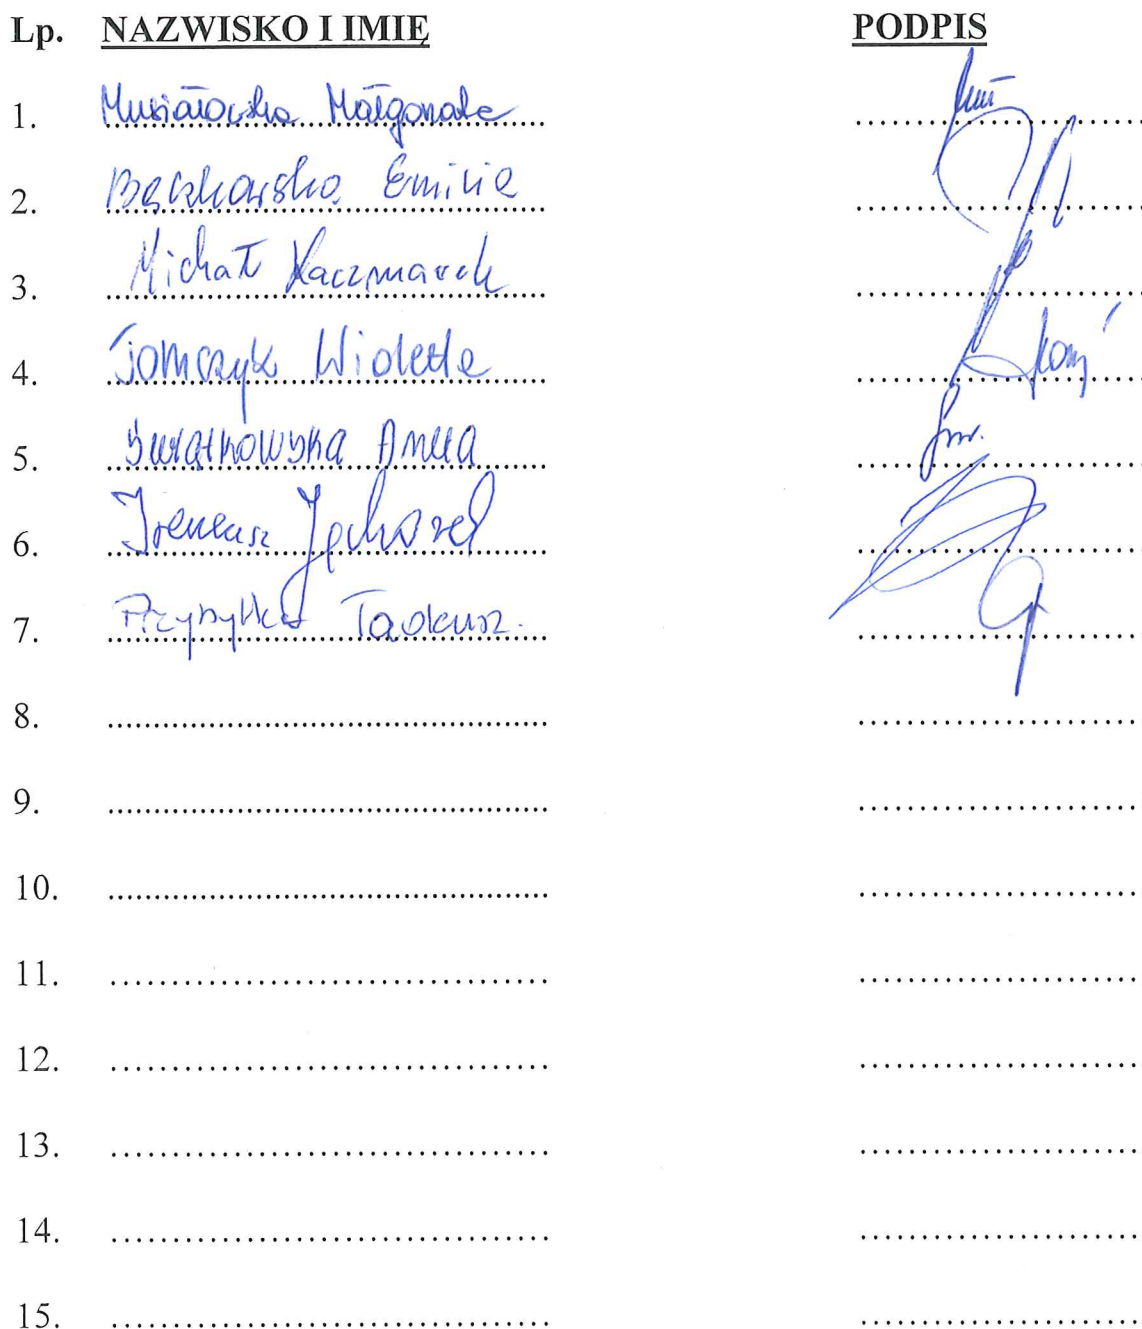 Lp. NAZWISKO I IMIĘ PODPIS
1. Musiałowska Małgorzata
2. Bączkowska Emilia
3. Michał Kaczmarek
4. Tomczyk Wioletta
5. Świątkowska Anna
6. Ireneusz
7. Przybyłka Tadeusz.
8.
9.
10.
11.
12.
13.
14.
15.